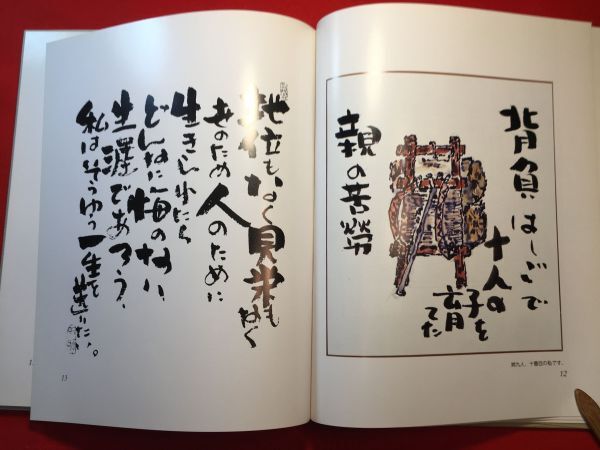 背負はしごで
十人の
子を
育てた
親の苦勞
十番目の私です。
12
地位もなく見栄もなく
世のため人のために
生きられたら
どんなに悔のない
生涯であろう、
私はそうゆう一生を送りたい。
13